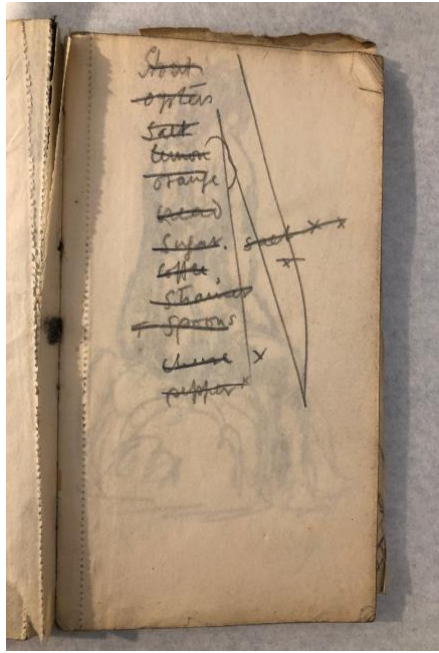 Stout
oysters
Salt
lemon
orange
bread
Sugar. salt x x
Coffee. x
Strainer
Spoons
cheese x
pepper x